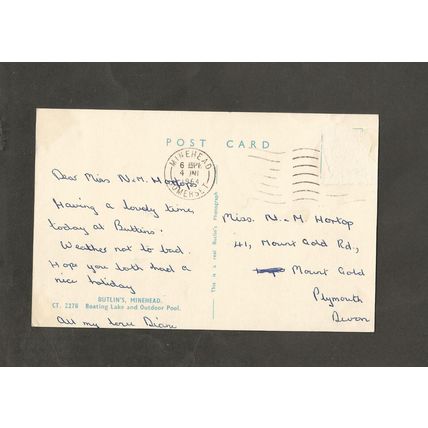 POST CARD
MINEHEAD
6 PM
4 JNE
1964
SOMERSET
Dear Miss N. M. Hortop,
Having a lovely time,
today at Butlins.
Weather not to bad.
Hope you both had a
nice holiday
BUTLIN'S, MINEHEAD.
CT. 2276 Boating Lake and Outdoor Pool.
All my love Diane
This is a real Butlin's Photograph
Miss. N. M. Hortop
41, Mount Gold Rd.,
Mount Gold
Plymouth
Devon